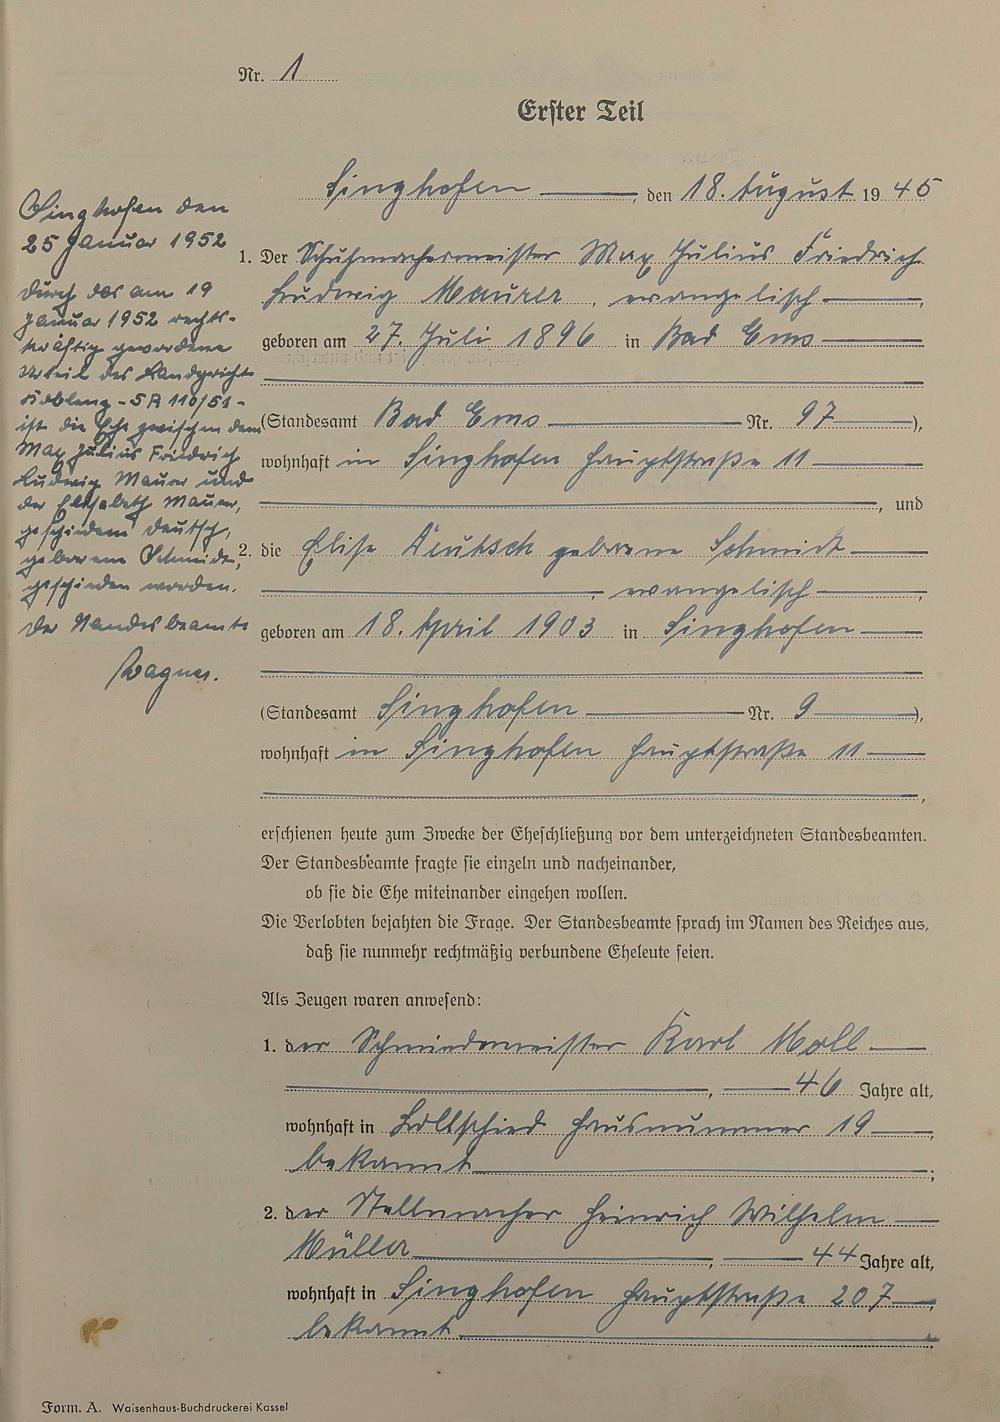 Nr. 1
Erster Teil
Singhofen, den 18. August 1945
Singhofen den
25 Januar 1952
durch das am 19
Januar 1952 rechts-
kräftig gewordene
Urteil des Landgerichts
Koblenz - 5 R 110/51 -
ist die Ehe zwischen dem
Max Julius Friedrich
Ludwig Maurer und
der Elisabeth Maurer,
geschiedene Deutsch,
geborene Schmidt,
geschieden worden.
Der Standesbeamte
Wagner.
1. Der Schuhmachermeister Max Julius Friedrich
Ludwig Maurer, evangelisch,
geboren am 27. Juli 1896 in Bad Ems
(Standesamt Bad Ems Nr. 97),
wohnhaft in Singhofen Hauptstraße 11
, und
2. die Elise Deutsch geborene Schmidt
, evangelisch,
geboren am 18. April 1903 in Singhofen
(Standesamt Singhofen Nr. 9),
wohnhaft in Singhofen Hauptstraße 11
,
erschienen heute zum Zwecke der Eheschließung vor dem unterzeichneten Standesbeamten.
Der Standesbeamte fragte sie einzeln und nacheinander,
ob sie die Ehe miteinander eingehen wollen.
Die Verlobten bejahten die Frage. Der Standesbeamte sprach im Namen des Reiches aus,
daß sie nunmehr rechtmäßig verbundene Eheleute seien.
Als Zeugen waren anwesend:
1. der Schmiedemeister Karl Moll
, 46 Jahre alt,
wohnhaft in Lollschied Hausnummer 19,
bekannt;
2. der Stellmacher Heinrich Wilhelm
Müller, 44 Jahre alt,
wohnhaft in Singhofen Hauptstraße 207,
bekannt.
Form. A. Waisenhaus-Buchdruckerei Kassel